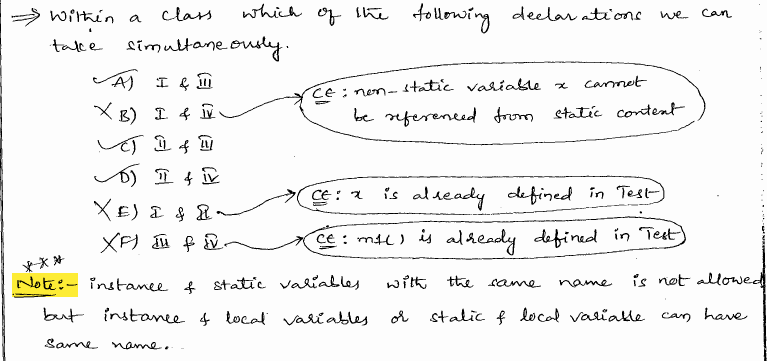 ⇒ Within a class which of the following declarations we can
take simultaneously.
✓A) I & III
X B) I & IV → CE : non-static variable x cannot
be referenced from static context
✓C) II & III
✓D) II & IV
X E) I & II → CE : x is already defined in Test
X F) III & IV → CE : m1() is already defined in Test
***
Note:- instance & static variables with the same name is not allowed
but instance & local variables or static & local variable can have
same name.